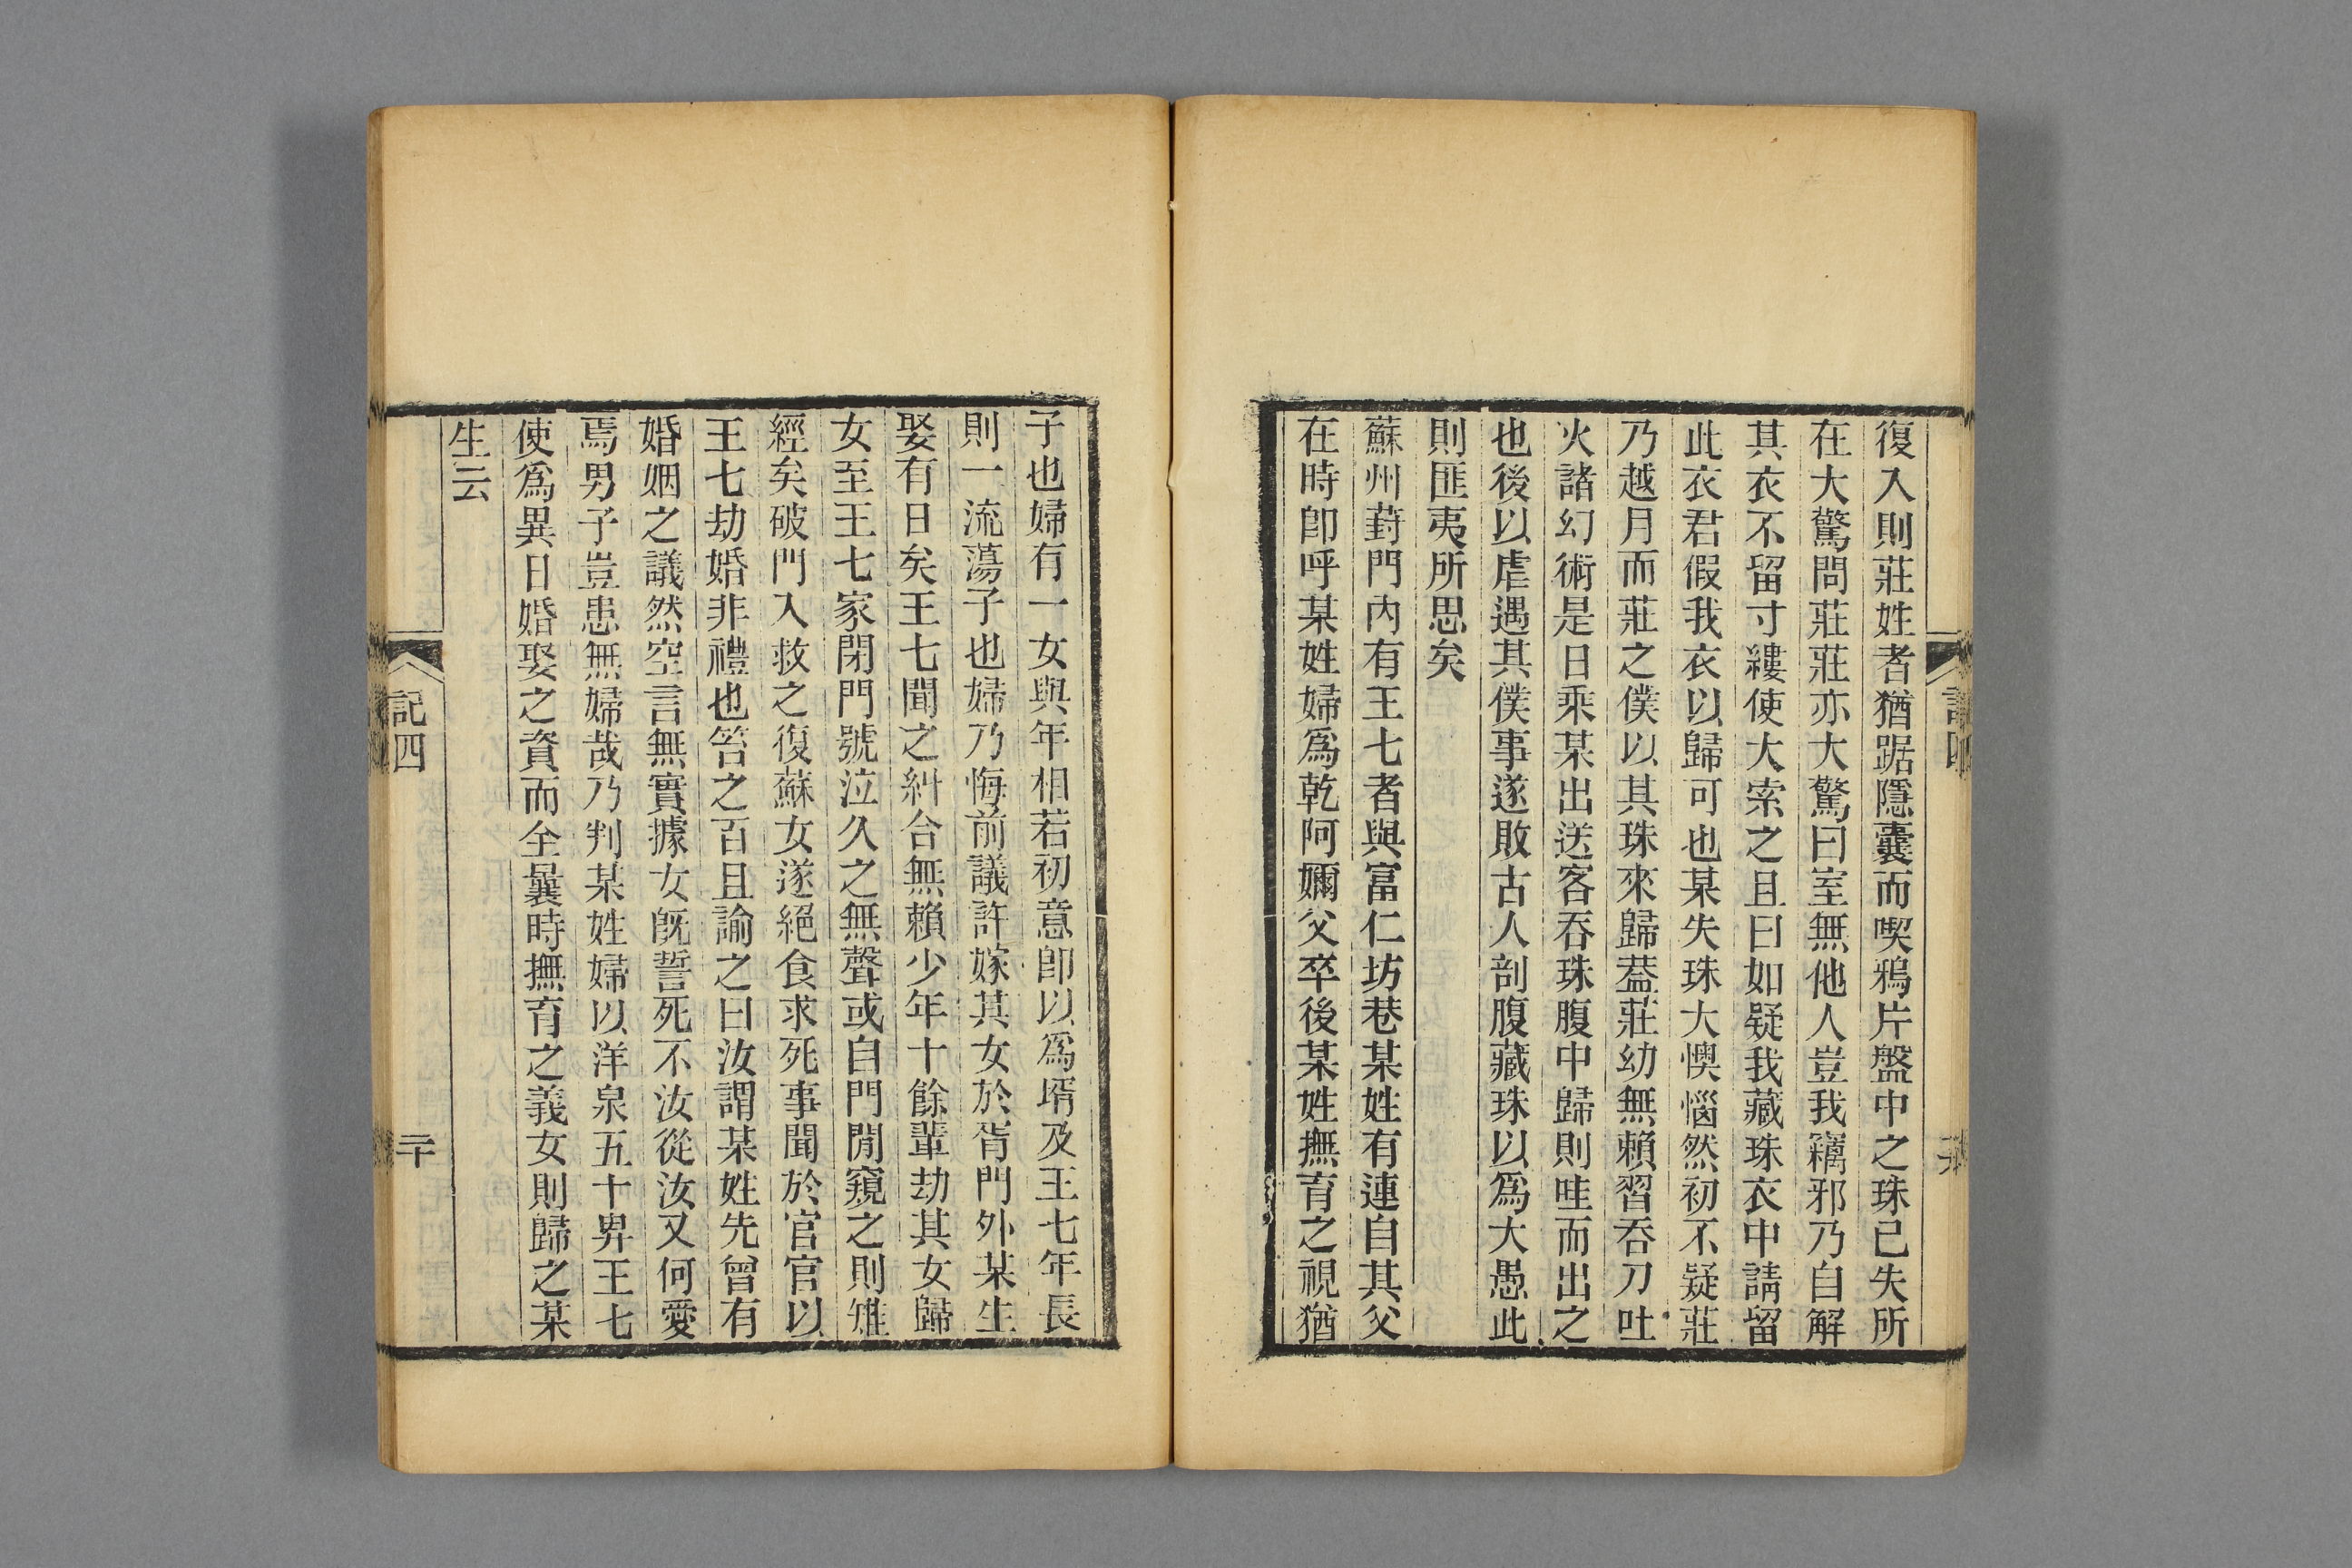 復入則莊姓者猶踞隱囊而喫鴉片盤中之珠已失所
在大驚問莊莊亦大驚曰室無他人豈我竊邪乃自解
其衣不留寸縷使大索之且曰如疑我藏珠衣中請留
此衣君假我衣以歸可也某失珠大懊惱然初不疑莊
乃越月而莊之僕以其珠來歸葢莊幼無賴習吞刀吐
火諸幻術是日乘某出送客吞珠腹中歸則哇而出之
也後以虐遇其僕事遂敗古人剖腹藏珠以爲大愚此
則匪夷所思矣
蘇州葑門內有王七者與富仁坊巷某姓有連自其父
在時卽呼某姓婦爲乾阿嬭父卒後某姓撫育之視猶
子也婦有一女與年相若初意卽以爲壻及王七年長
則一流蕩子也婦乃悔前議許嫁其女於胥門外某生
娶有日矣王七聞之糾合無賴少年十餘輩劫其女歸
女至王七家閉門號泣久之無聲或自門閒窺之則雉
經矣破門入救之復蘇女遂絕食求死事聞於官官以
王七劫婚非禮也笞之百且諭之曰汝謂某姓先曾有
婚姻之議然空言無實據女旣誓死不汝從汝又何愛
焉男子豈患無婦哉乃判某姓婦以洋泉五十畀王七
使爲異日婚娶之資而全曩時撫育之義女則歸之某
生云
記四
二十